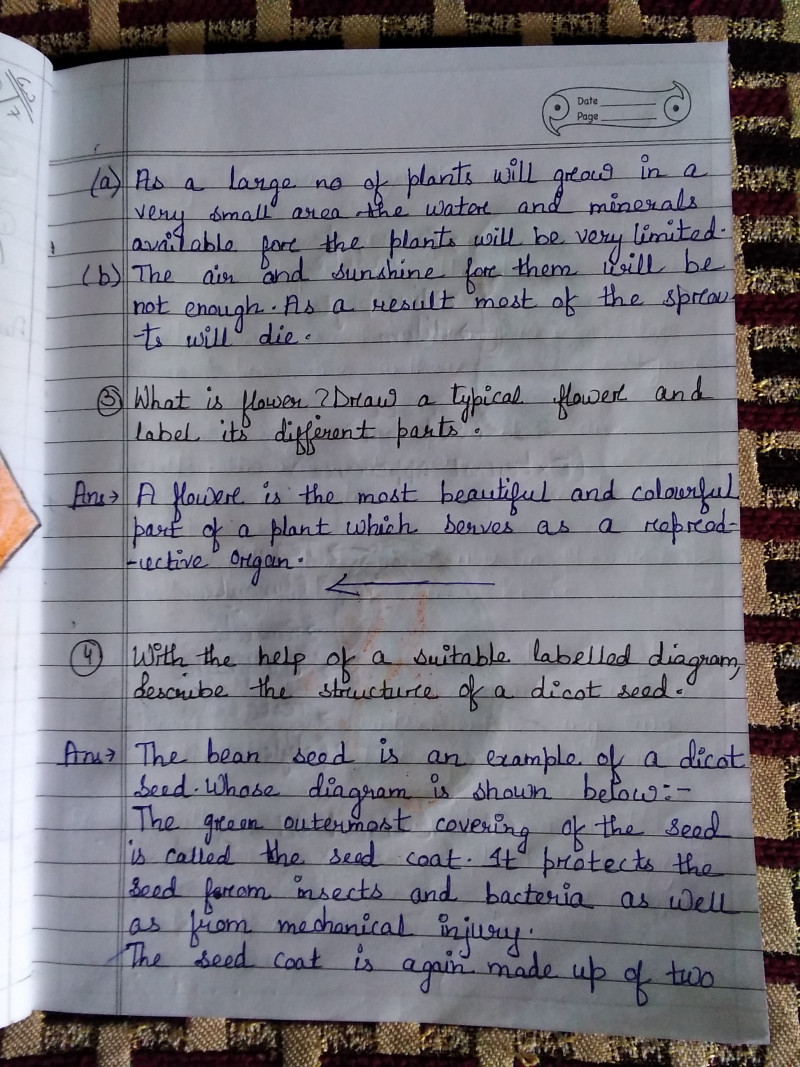 Date
Page
(a) As a large no of plants will grow in a
very small area the water and minerals
available for the plants will be very limited.
(b) The air and sunshine for them will be
not enough. As a result most of the sprou-
ts will die.
③ What is flower? Draw a typical flower and
label its different parts.
Ans→ A flower is the most beautiful and colourful
part of a plant which serves as a reprod-
-uctive organ.
④ With the help of a suitable labelled diagram,
describe the structure of a dicot seed.
Ans→ The bean seed is an example of a dicot
seed. Whose diagram is shown below:-
The green outermost covering of the seed
is called the seed coat. It protects the
seed from insects and bacteria as well
as from mechanical injury.
The seed coat is again made up of two